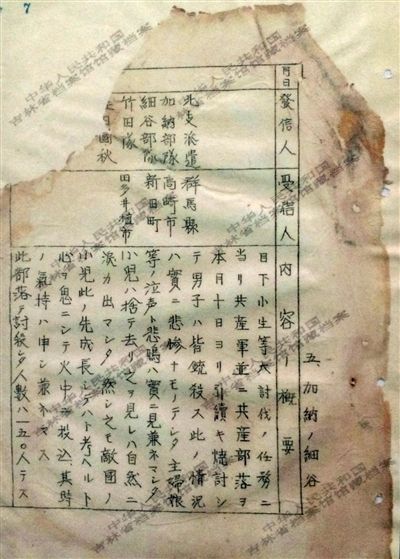 7
五、加納ノ細谷
月日
發信人
受信人
内容ノ概要
北支派遣
加納部隊
細谷部隊
竹田隊
田國秋
群馬縣
高崎市
新田町
田多井植市
目下小生等大討伐ノ任務ニ
当リ共産軍並ニ共産部落ヲ
本月十日ヨリ引續キ焼討シ
テ男子ハ皆銃殺ス此ノ情況
ハ實ニ悲惨ナモノデシタ主婦娘
等ノ泣声ト悲鳴ハ實ニ見兼ネマシタ
小児ハ捨テ去リ之ヲ見レハ自然ニ
涙カ出マシタ然シ之モ敵國ノ
小児此ノ先成長シテハト考ヘルト
心ヲ鬼ニシテ火中ニ投込ム其時
ノ氣持ハ申シ兼ネマス
此部落デ討殺シタ人数ハ一五〇人デス
中华人民共和国
吉林省档案馆馆藏档案